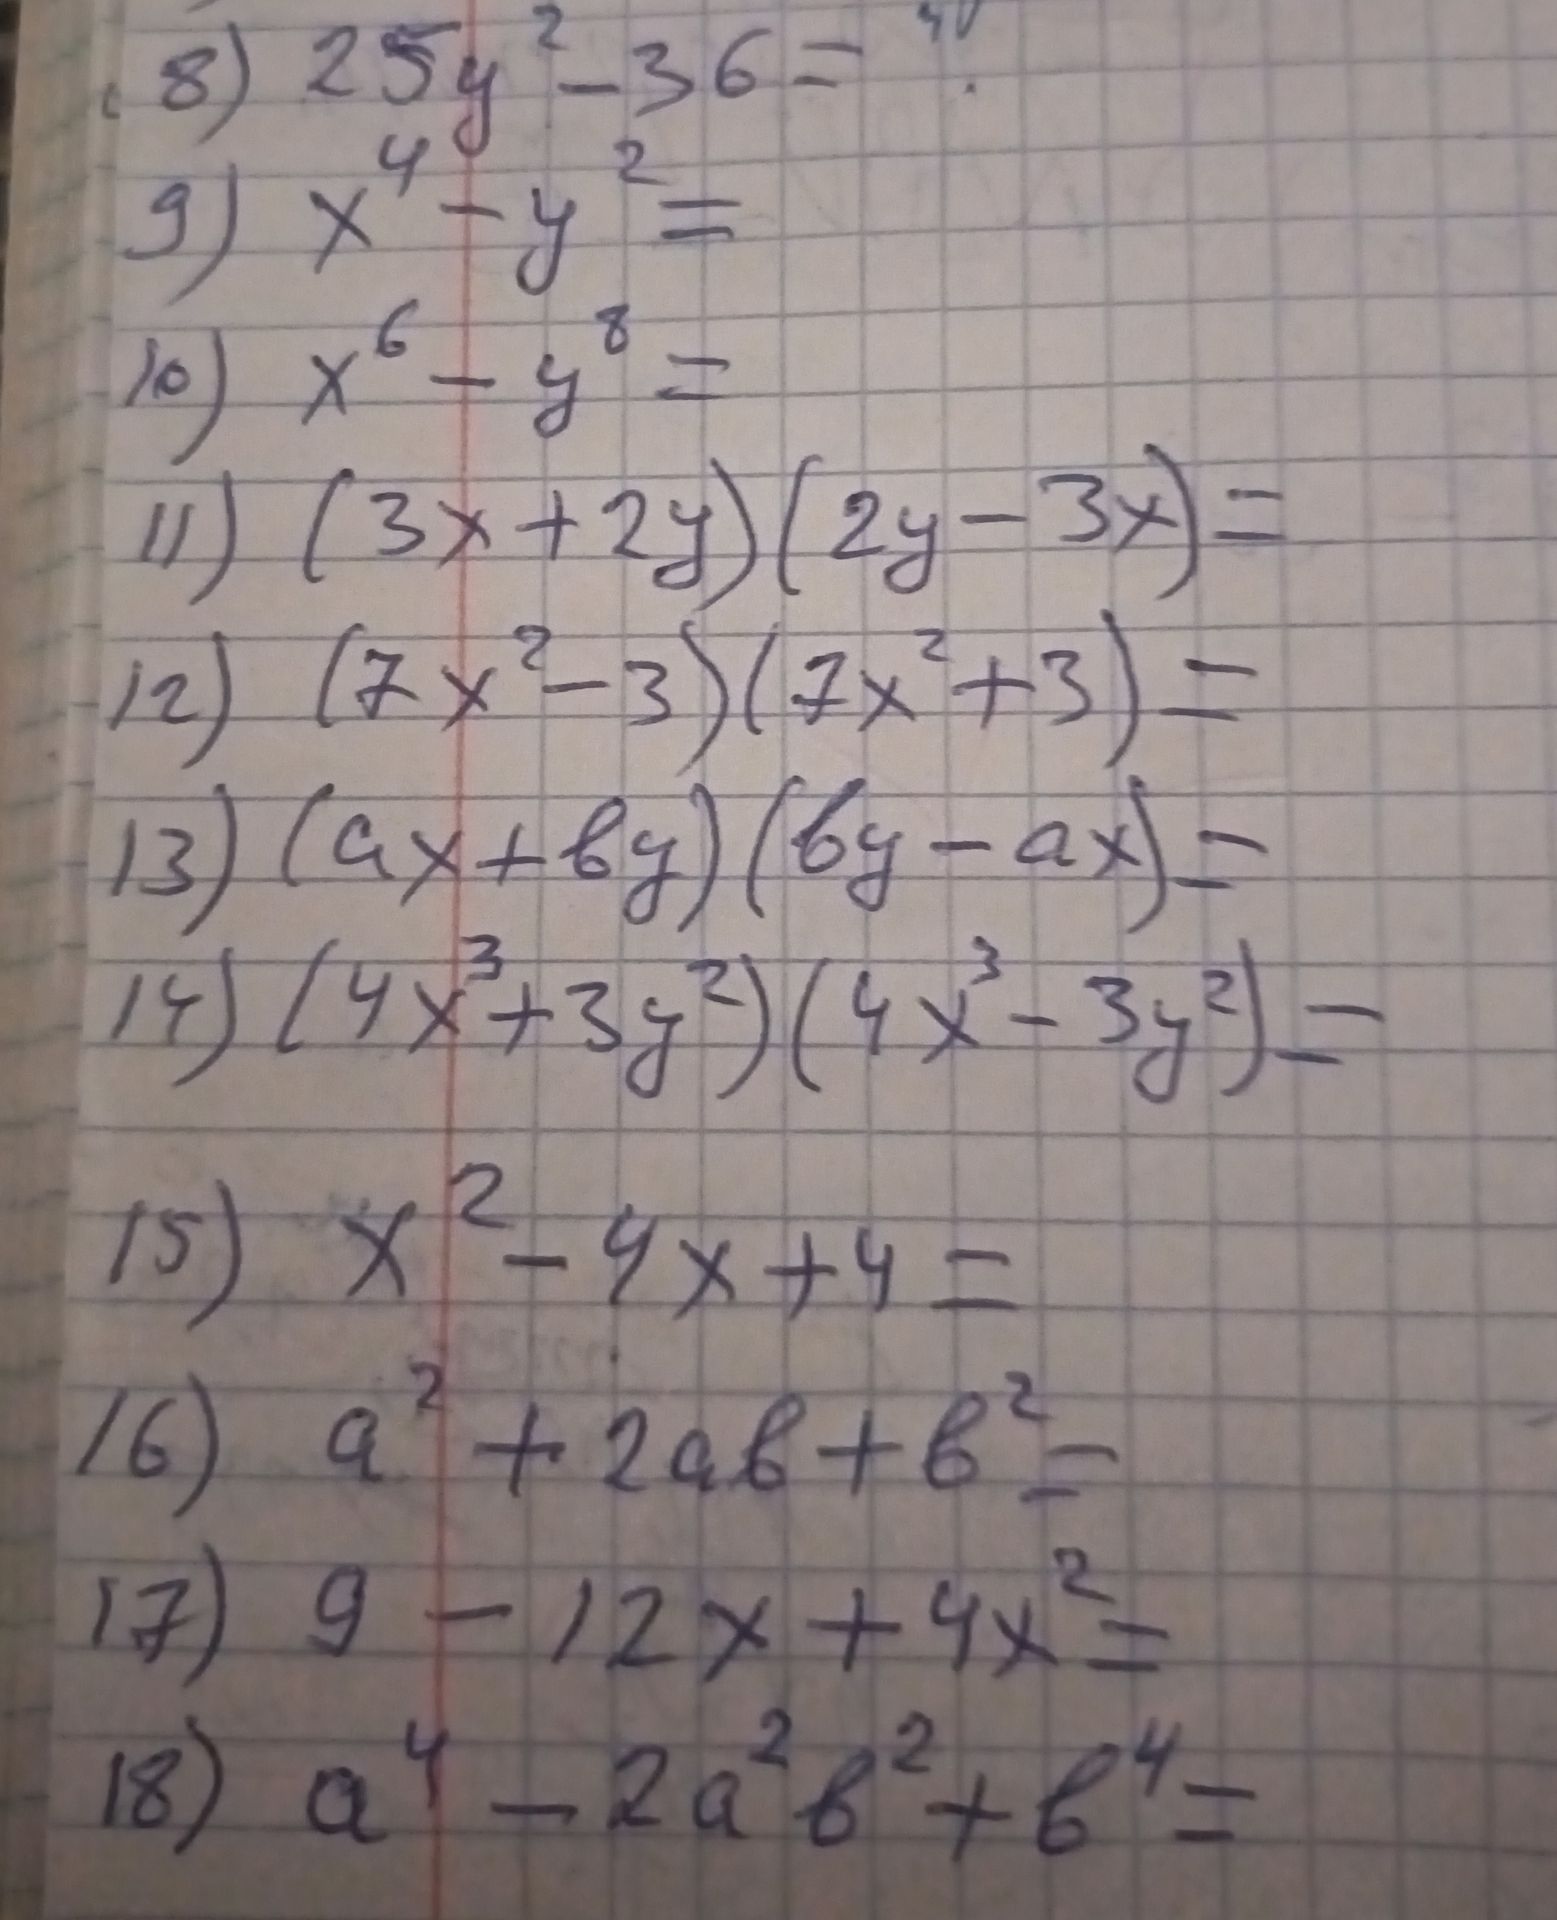 8) 25y² - 36 =
9) x⁴ - y² =
10) x⁶ - y⁸ =
11) (3x + 2y)(2y - 3x) =
12) (7x² - 3)(7x² + 3) =
13) (ax + by)(by - ax) =
14) (4x³ + 3y²)(4x³ - 3y²) =
15) x² - 4x + 4 =
16) a² + 2ab + b² =
17) 9 - 12x + 4x² =
18) a⁴ - 2a²b² + b⁴ =